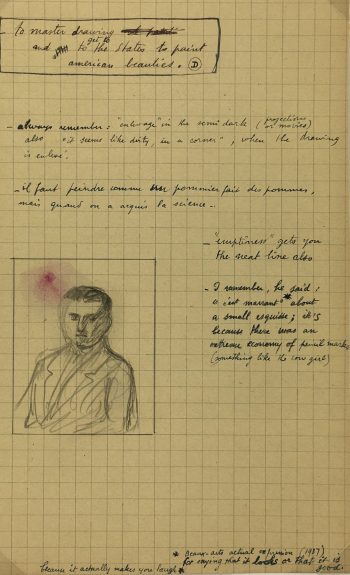 to master drawing
and get to the States to paint
american beauties. D
- always remember: "enlevage" in the semi dark (projections or movies)
also "it seems like dirty, in a corner", when the drawing
is enlevé.
- il faut peindre comme un pommier fait des pommes,
mais quand on a acquis la science -
- "emptiness" gets you
the neat line also
- I remember, he said:
"c'est marrant"* about
a small esquisse; it's
because there was an
extreme economy of pencil marks
(something like the cow girl)
* Beaux-arts actual expression (1937)
for saying that it looks or that it is
good.
because it actually makes you laugh *